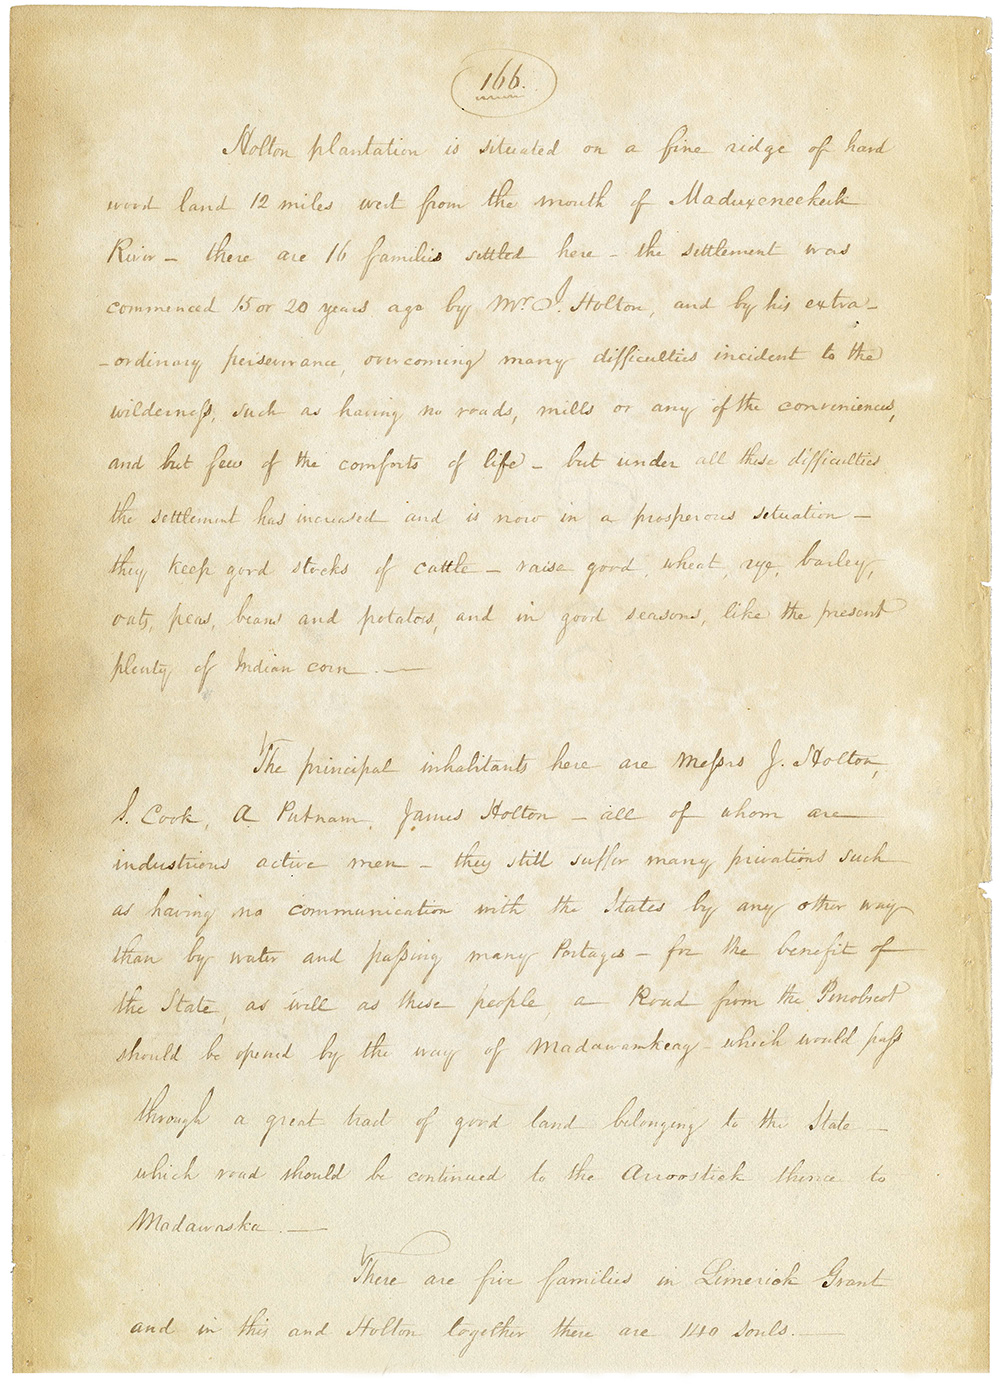 166.
Holton plantation is situated on a fine ridge of hard
wood land 12 miles west from the mouth of Maduxeneekeek
River – there are 16 families settled here – the settlement was
commenced 15 or 20 years ago by Mr. J. Holton, and by his extra-
-ordinary perseverance, overcoming many difficulties incident to the
wilderneſs, such as having no roads, mills or any of the conveniences,
and but few of the comforts of life – but under all these difficulties
the settlement has increased and is now in a prosperous situation –
they keep good stocks of cattle – raise good wheat, rye, barley,
oats, peas, beans and potatoes, and in good seasons, like the present
plenty of Indian corn. —
The principal inhabitants here are Meſsrs J. Holton,
S. Cook, A Putnam, James Holton – all of whom are
industrious active men – they still suffer many privations such
as having no communication with the States by any other way
than by water and paſsing many Portages – for the benefit of
the State, as well as these people, a Road from the Penobscot
should be opened by the way of Madawamkeag – which would paſs
through a great tract of good land belonging to the State –
which road should be continued to the Aroostick thence to
Madawaska. —
There are five families in Limerick Grant
and in this and Holton together there are 140 souls. —